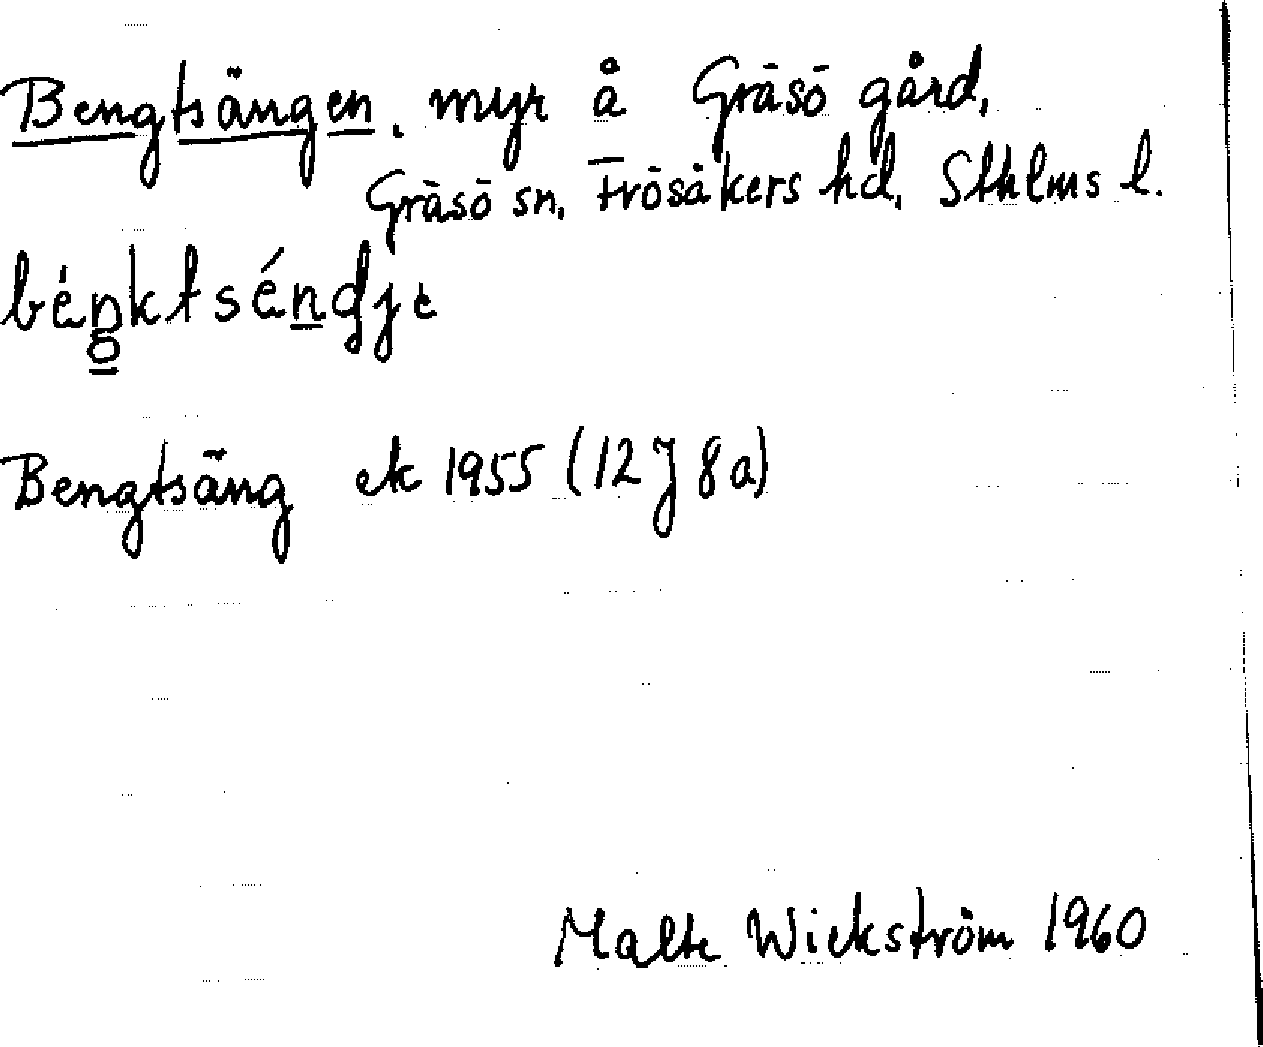 Bengtsängen, myr å Gräsö gård,
Gräsö sn, Frösåkers hd, Sthlms l.
bénktséndje
Bengtsäng ek 1955 (12 J 8 a)
Malte Wickström 1960